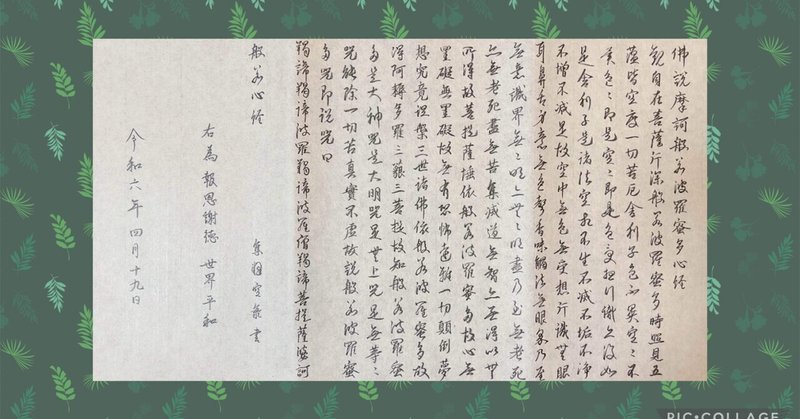 佛説摩訶般若波羅蜜多心経
観自在菩薩行深般若波羅蜜多時照見五
蘊皆空度一切苦厄舎利子色不異空々不
異色々即是空々即是色受想行識亦復如
是舎利子是諸法空相不生不滅不垢不浄
不増不減是故空中無色無受想行識無眼
耳鼻舌身意無色聲香味觸法無眼界乃至
無意識界無々明亦無々明盡乃至無老死
亦無老死盡無苦集滅道無智亦無得以無
所得故菩提薩埵依般若波羅蜜多故心無
罣礙無罣礙故無有恐怖遠離一切顛倒夢
想究竟涅槃三世諸佛依般若波羅蜜多故
得阿耨多羅三藐三菩提故知般若波羅蜜
多是大神呪是大明呪是無上呪是無等々
呪能除一切苦真實不虚故説般若波羅蜜
多呪即説呪曰
羯諦羯諦波羅羯諦波羅僧羯諦菩提薩婆訶
般若心経
右為報恩謝徳 世界平和
令和六年四月十九日
PIC•COLLAGE